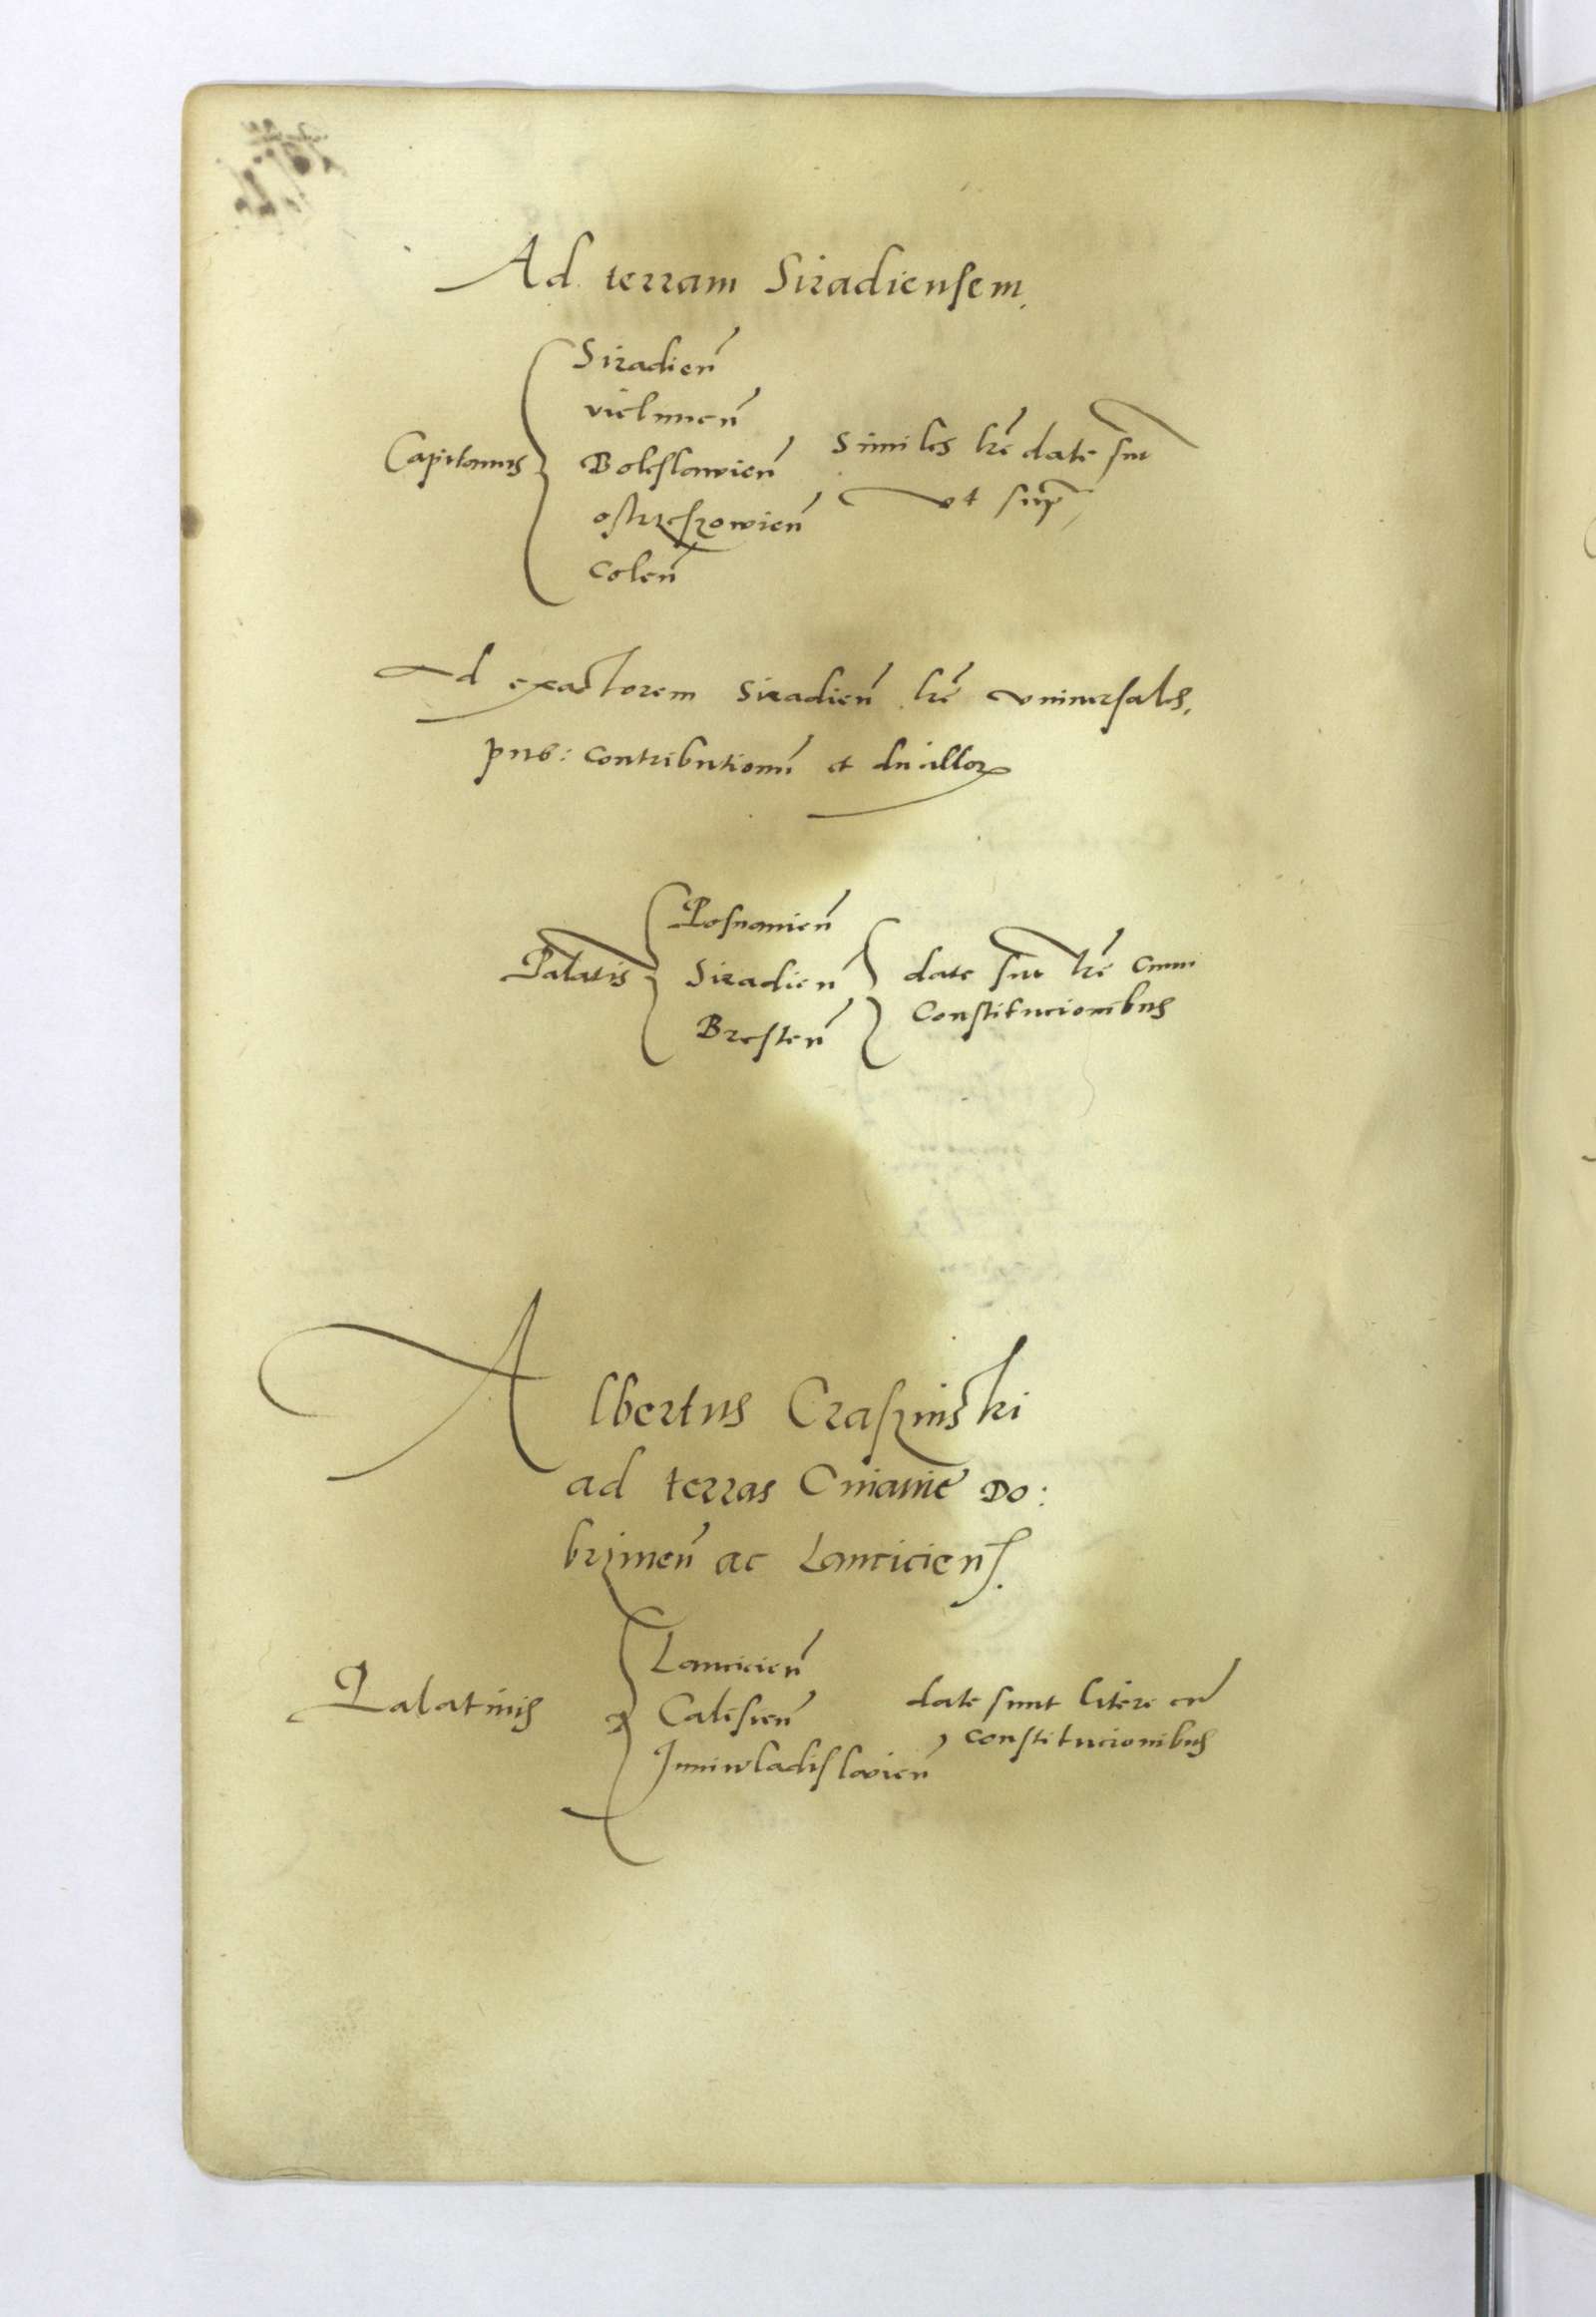 Ad terram Siradiensem.
Capitaneis
Siradien̄
vielunen̄
Boleslavien̄
ostrzeszowien̄
Colen̄
Similes l̄re date sūt
vt sup
Ad exactorem Siradien̄ l̄re vniuersales,
pub: contributionū et
Palatis
Posnanien̄
Siradien̄
Bresten̄
date sūt l̄re cum
Constitucionibus
Albertus Craszinski
ad terras Cuiauie Do:
brzinen̄ ac Lanciciens.
Palatinis
Lancicien̄
Calisien̄
Juniwladislavien̄
date sunt litere cū
constitucionibus